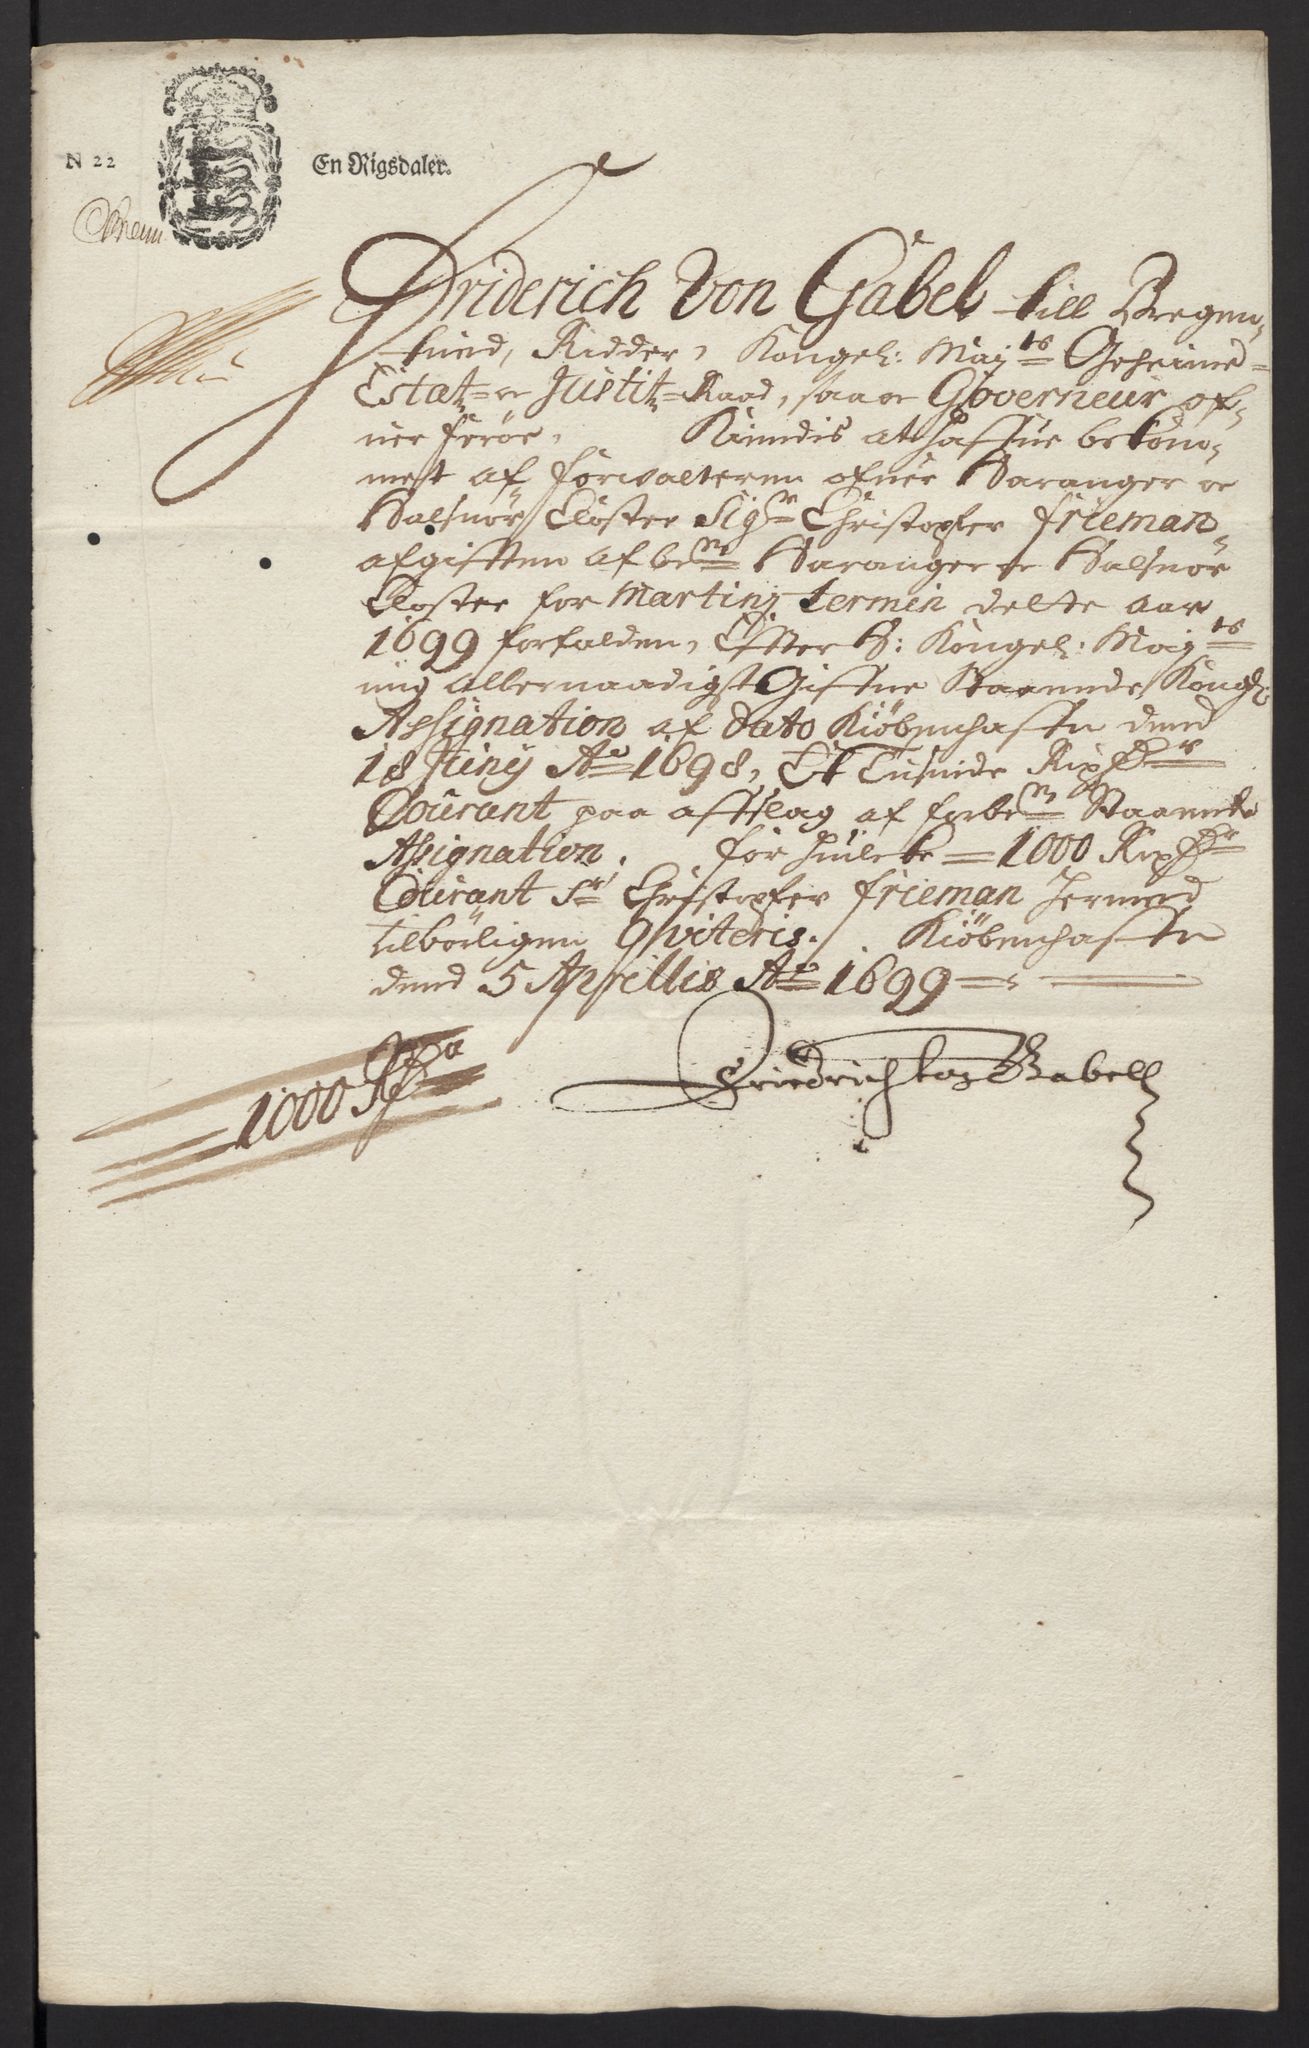 N 22
En Rigsdaler.
Friderich Von Gabel till Bregen,
tued, Ridder, Kongel: Mayts Geheime=
Estatz= oc Justitz=Raad, saa oc Governeur of,
uer Feröe, Kiendis at haffue bekom,
met af Forvalteren ofuer Haranger oc
Halsnöe Closter Sigr Christopfer Frieman
afgifften af bemte Haranger oc Halsnöe
Closter for Martinj termin dette aar
1699 forfalden, Effter H: Kongel: Mayts
mig allernaadigst Giffne Staaende Kongl:
Assignation af Dato Kiöbenhaffn dend
18 Junij Ao 1698, Et Tusinde Rixdlr
Courant paa afslag af forbemte Staaende
Assignation. for huilcke = 1000 Rixdlr
Courant Sr Christopfer Frieman hermed
tilbörligen Qviteris. Kiöbenhaffn
dend 5 Aprillis Ao 1699
Friedrich von Gabell
1000 Rdr